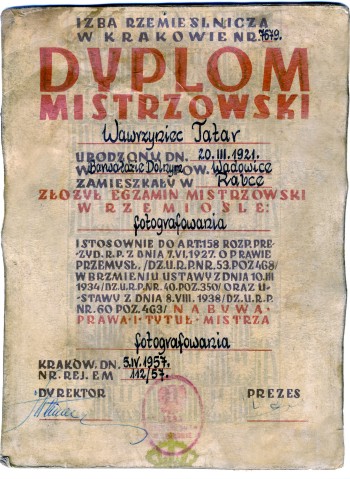 IZBA RZEMIEŚLNICZA
W KRAKOWIE NR. 7649.
DYPLOM
MISTRZOWSKI
Wawrzyniec Tatar
URODZONY DN. 20.III.1921.
W Barwałdzie Dolnym POW. Wadowice
ZAMIESZKAŁY W Rabce
ZŁOŻYŁ EGZAMIN MISTRZOWSKI
W RZEMIOŚLE:
fotografowania
I STOSOWNIE DO ART.158 ROZP. PRE-
ZYD. R.P. Z DNIA 7.VI.1927. O PRAWIE
PRZEMYSŁ. /DZ.U.R.P. NR.53. POZ.468/
W BRZMIENIU USTAWY Z DNIA 10.III
1934/DZ.U.R.P. NR.40. POZ.350/ ORAZ U-
STAWY Z DNIA 8.VIII.1938/DZ.U.R.P.
NR.60 POZ.463/ NABYWA
PRAWA I TYTUŁ MISTRZA
fotografowania
KRAKÓW. DN. 5.IV.1957.
NR. REJ. EM 112/57.
DYREKTOR PREZES